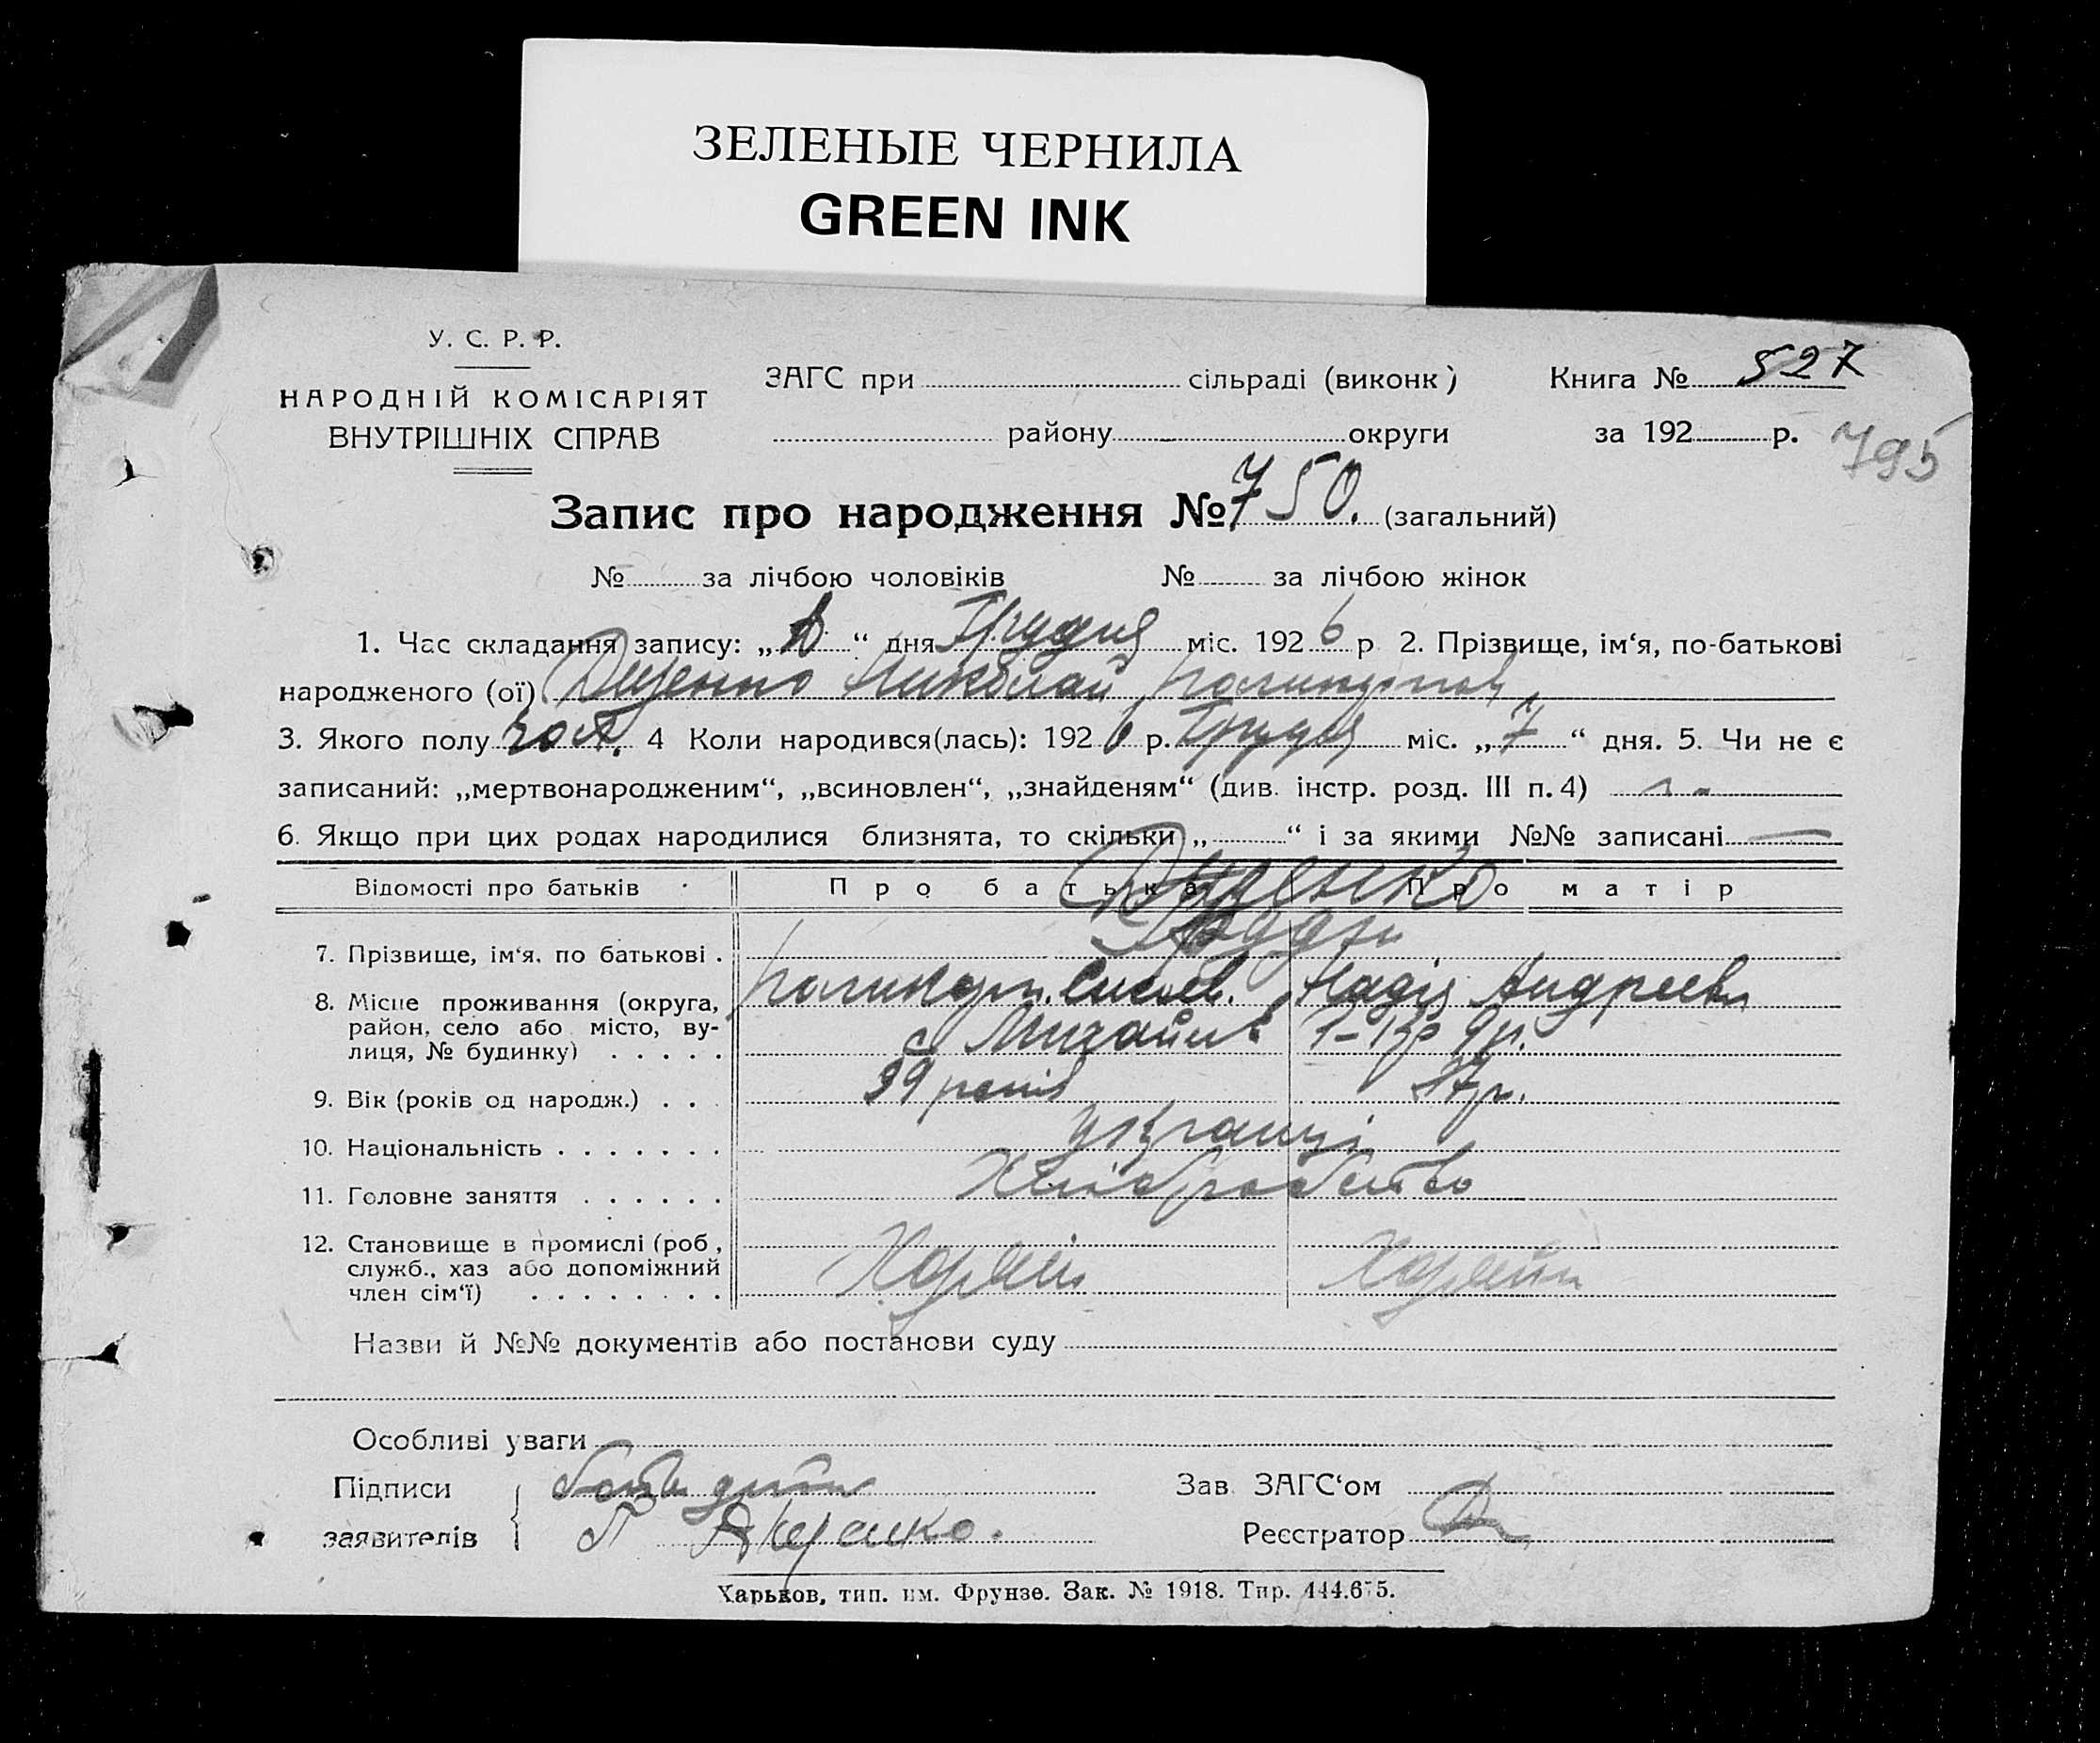 ЗЕЛЕНЫЕ ЧЕРНИЛА
GREEN INK
У. С. Р. Р.
НАРОДНІЙ КОМІСАРІЯТ
ВНУТРІШНІХ СПРАВ
ЗАГС при сільраді (виконк) Книга № 527
району округи за 192 р. 795
Запис про народження № 750. (загальний)
№ за лічбою чоловіків № за лічбою жінок
1. Час складання запису: „ “ дня Грудня міс. 1926 р 2. Прізвище, ім‘я, по-батькові
народженого (ої) Николай
3. Якого полу чол. 4 Коли народився(лась): 1926 р. Грудня міс. „7“ дня. 5. Чи не є
записаний: „мертвонародженим“, „всиновлен“, „знайденям“ (див. інстр. розд. III п. 4)
6. Якщо при цих родах народилися близнята, то скільки „ “ і за якими №№ записані
Відомості про батьків Про батька Про матір
7. Прізвище, ім‘я, по батькові .
8. Місце проживання (округа, Надія Андреевн
район, село або місто, ву-
лиця, № будинку) . . . . .
9. Вік (років од народж.) . . 39 років 37 р.
10. Національність . . . . . . . українці
11. Головне заняття . . . . . . Хліборобство
12. Становище в промислі (роб,
служб., хаз або допоміжний
член сім‘ї) . . . . . . . .
Назви й №№ документів або постанови суду
Особливі уваги
Підписи Зав. ЗАГС‘ом
заявителів Реєстратор
Харьков, тип. им. Фрунзе. Зак. № 1918. Тир. 444.675.